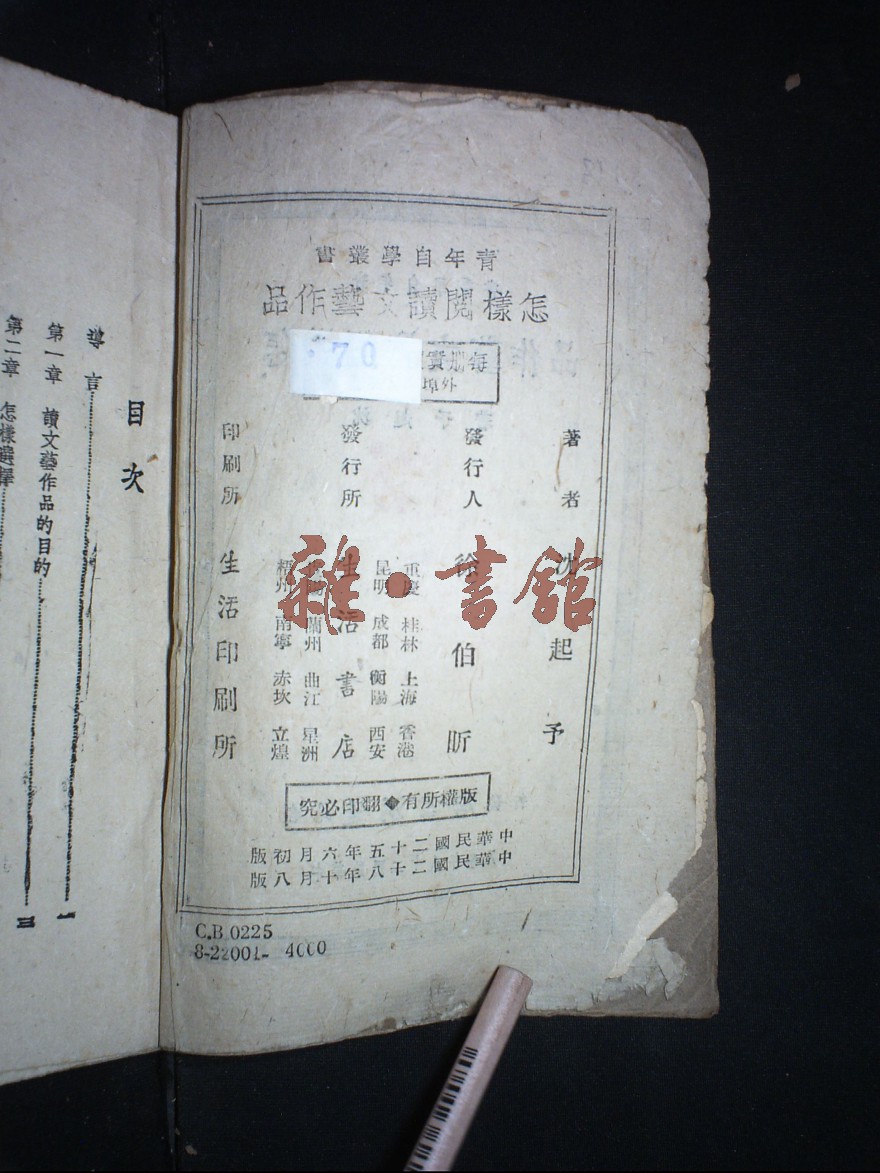 青年自學叢書
怎樣閱讀文藝作品
.70
每册實
外埠
著者 沈起予
發行人 徐伯昕
發行所 生活書店
重慶 桂林 上海 香港
昆明 成都 衡陽 西安
蘭州 曲江 星洲
梧州 南寧 赤坎 立煌
印刷所 生活印刷所
版權所有◆翻印必究
中華民國二十五年六月初版
中華民國二十八年十月八版
C.B 0225
8-22001- 4000
目次
導言 一
第一章 讀文藝作品的目的 三
第二章 怎樣選擇
雜·書館